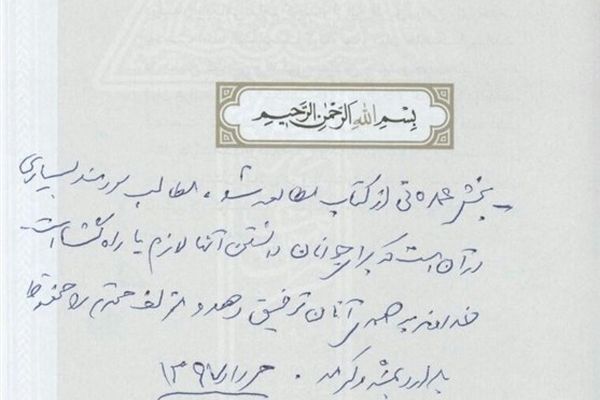 بِسْمِ اللهِ الرَّحْمٰنِ الرَّحِيمِ
ـ بخش عمده‌ئی از کتاب مطالعه شد، مطالب سودمند بسیاری
در آن است که برای جوانان دانستن آنها لازم یا راه‌گشا است.
خداوند به همهٔ آنان توفیق دهد و مؤلف محترم را محفوظ
بدارد بمنّه و کرمه. خرداد ۱۳۹۷